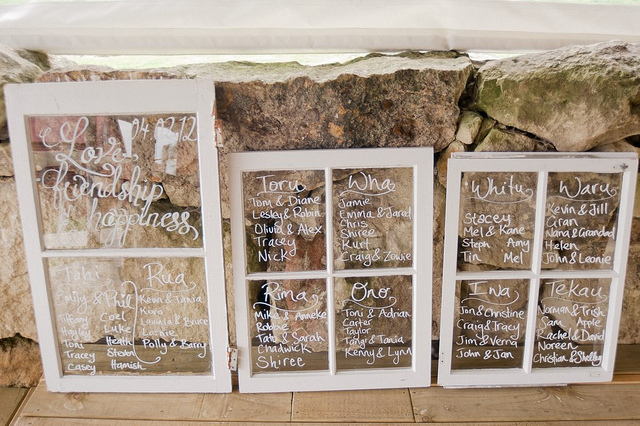 04.02.12
Love
friendship
& happiness
Tahi
Emily & Phil
Tiffany Cael
Hayley Luke
Toni Heath
Tracey Steven
Casey Hamish
Rua
Kevin & Tania
Kiara
Lavinia & Bruce
Lachie
Polly & Barry
Toru
Tom & Diane
Lesley & Robin
Olivia & Alex
Tracey
Nick
Wha
Jamie
Emma & Jarod
Chris
Shiree
Kurt
Craig & Zowie
Rima
Mike & Anneke
Robbie
Tate & Sarah
Chadwick
Shiree
Ono
Toni & Adrian
Carter
Taylor
Tangi & Tania
Kenny & Lynn
Whitu
Stacey
Mel & Kane
Steph Amy
Tin Mel
Waru
Kevin & Jill
Ciran
Nana & Grandad
Helen
John & Leonie
Iwa
Jon & Christine
Craig & Tracy
Jim & Verna
John & Jan
Tekau
Norman & Trish
Sam Apple
Rachel & David
Noreen
Christian & Shelley